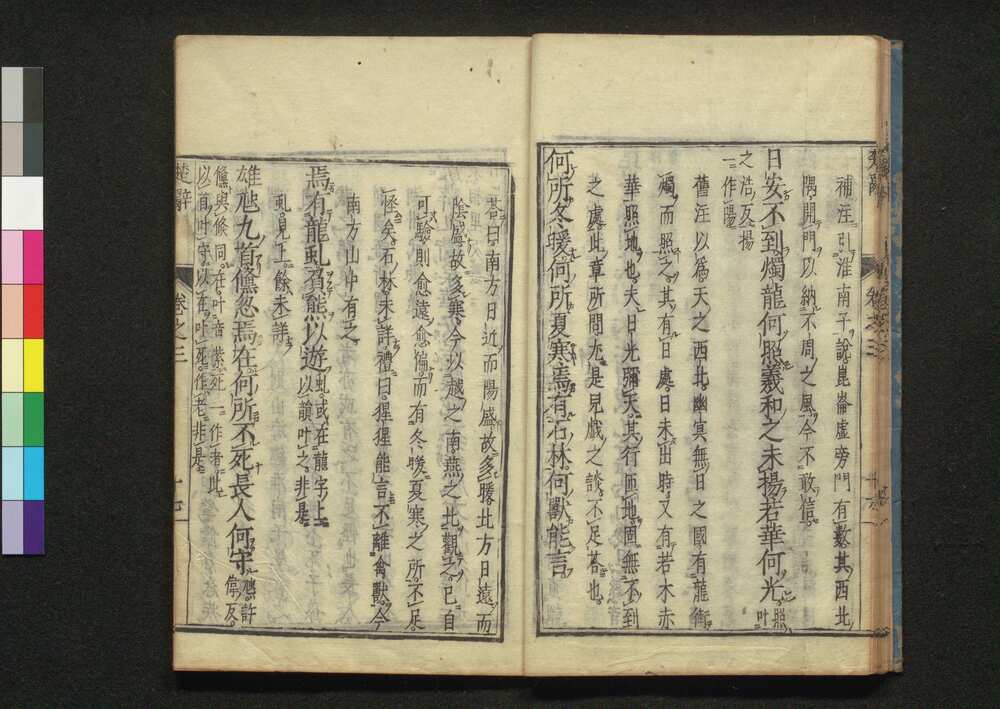 補注引淮南子說崑崙虛旁門有數其西北
隅開門以納不周之風今不敢信
日安不到燭龍何照羲和之未揚若華何光 照叶
之浩反揚
一作陽
舊注以爲天之西北幽冥無日之國有龍銜
燭而照之其有日處日未出時又有若木赤
華照地也夫日光彌天其行匝地固無不到
之處此章所問尤是兒戲之談不足荅也
何所冬暖何所夏寒焉有石林何獸能言
荅曰南方日近而陽盛故多暖北方日遠而
陰盛故多寒今以越之南燕之北觀之已自
可驗則愈遠愈偏而有冬暖夏寒之所不足
怪矣石林未詳禮曰猩猩能言不離禽獸今
南方山中有之
焉有龍虬負熊以遊 虬或在龍字上
以韻叶之非是
虬見上餘未詳
雄虺九首儵忽焉在何所不死長人何守 虺許
偉反
儵與倐同在叶音紫死一作老此
以首叶守以在叶死作老非是
楚辭
卷之三
十七